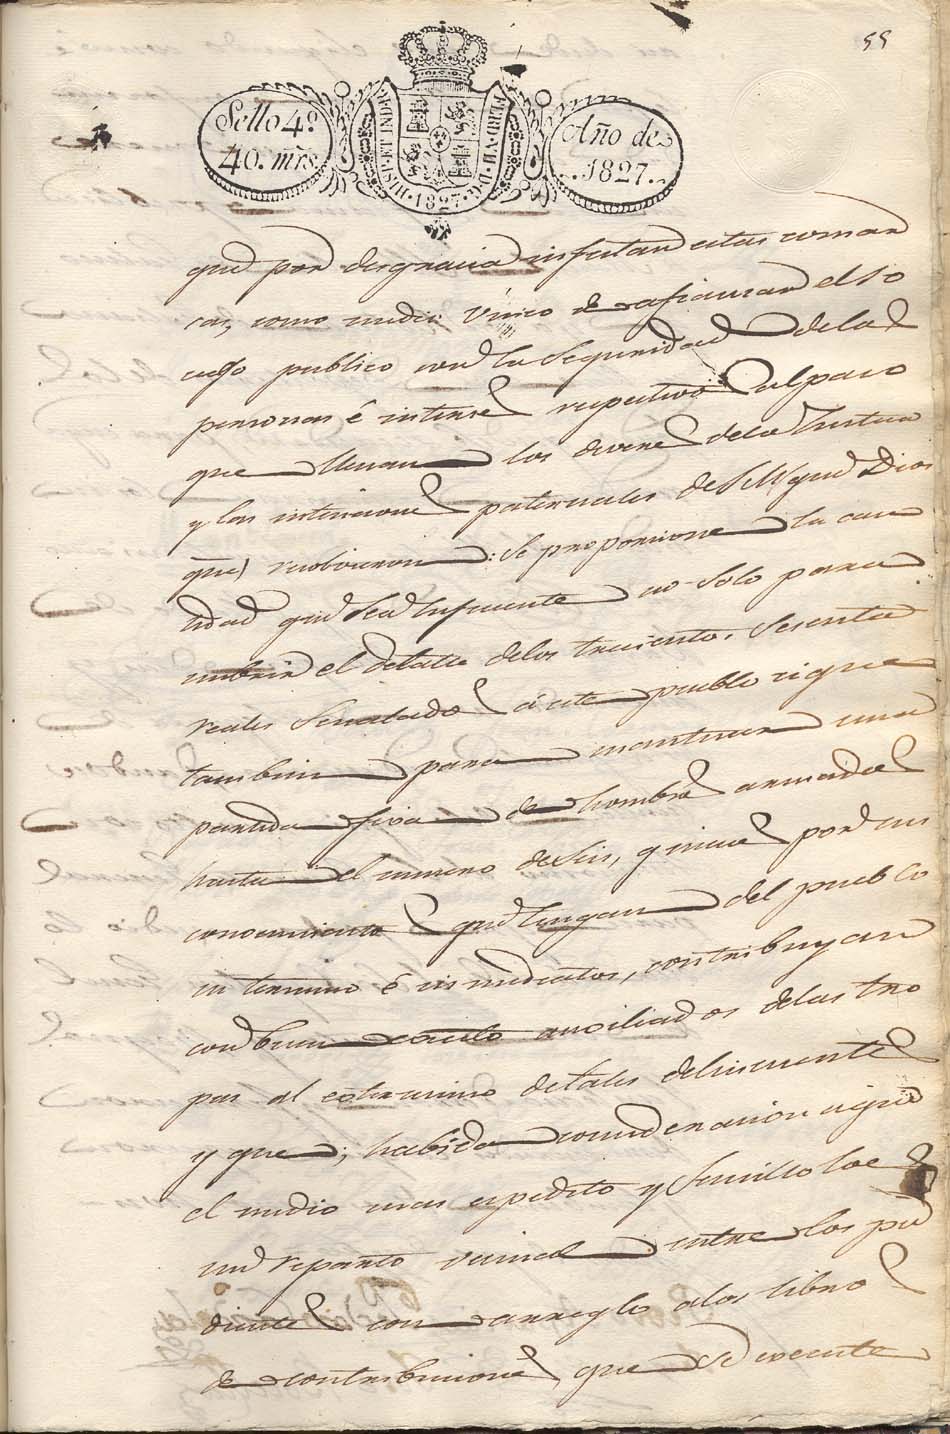 55
Sello 4º
40. mrs
HISP. ET IND. R.
FERD. VII. D. G.
1827.
Año de
1827.
que por desgracia infestan estas comar
cas, como medio Unico de afianzar el so
ciego publico con la Seguridad de las
personas é interes respectivos al paso
que llenan los deveres de la Justicia
y las intenciones paternales de S. M. (que Dios
gue) resolvieron: Se proporcione la can
tidad que sea suficiente no solo para
cubrir el detalle de los trescientos Sesenta
reales Senalados á este pueblo si que
tambien para mantener una
partida fixa de hombres armados
hasta el numero de Seis, quienes por sus
conocimientos que tengan del pueblo
su termino é inmediatos, contribuyan
con buen exito auxiliados de las tro
pas al exterminio de tales delincuentes
y que; habida consideracion a que
el medio mas expedito y Sencillo lo es
un reparto vecinal entre los pu
dientes con arreglo a los libros
de contribuciones, que se execute